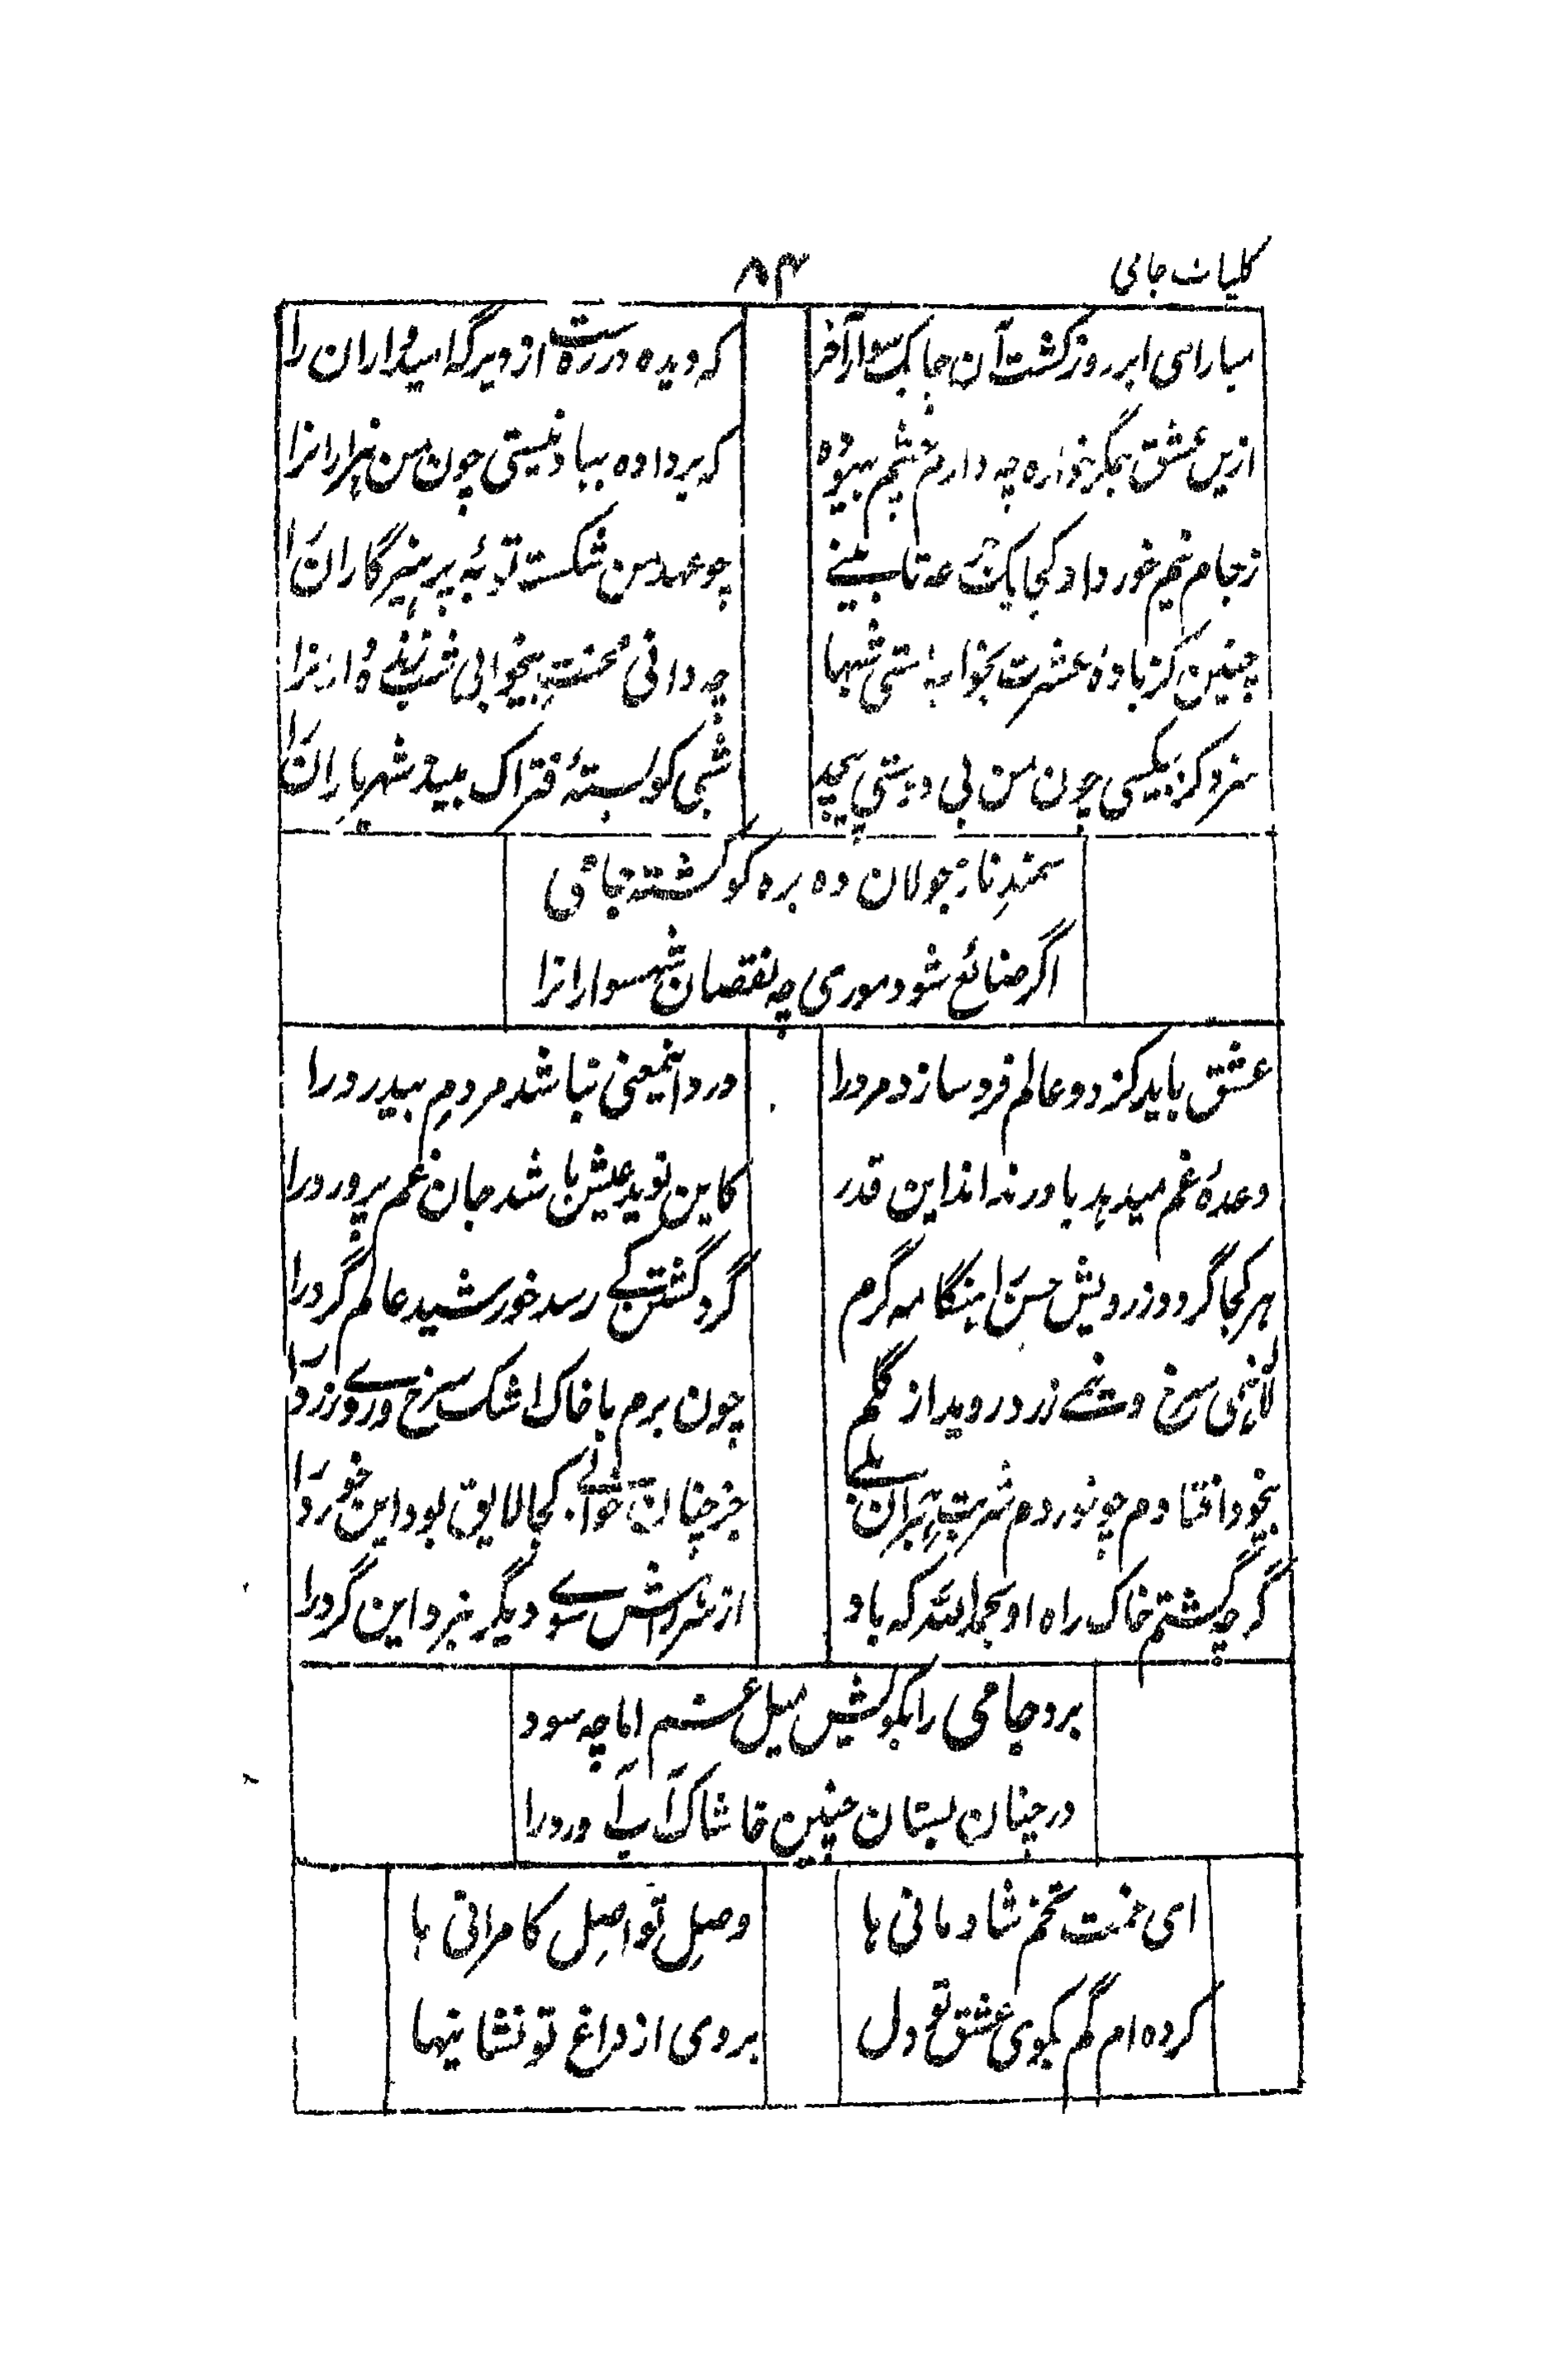 کلیات جامی
۸۳
مبار ای ابر روز گشت آن چابک سوار آخر
که دیده در ره است از دیرگه امیدواران را
ازین عشق جگرخواره چه دارم چشم بهبوده
که برداده بباد نیستی چون من هزارانرا
ز جام نیم خورد او کجا یک جرعه تا بینے
چو عهد من شکسته توبهٔ پرهیزگاران را
چنین کز بادهٔ عشرت بخواب مستی شبها
چه دانی محنت بیخوابی شب زنده‌دارانرا
سزد کز بیکسی چون من بی دوستی پیچد
شبی کو بستهٔ فتراک بیند شهریاران را
سمندِ ناز جولان ده بره گو کشته شو جامی
اگر ضائع شود موری چه نقصان شهسوارانرا
عشق باید کز دو عالم فرد سازد مرد را
درد اینمعنی نباشد مردمِ بیدرد را
وعدهٔ غم میدهد یا درنه اند این قدر
کاین نوید عیش باشد جان غم پرورد را
هر کجا گردد ز رویش حسن را هنگامه گرم
گرد گشتن کے رسد خورشید عالم گرد را
لالهٔ سرخ و شے زرد روید از گلم
چون برم با خاک اشک سرخ و روے زرد را
بیخود افتادم چو خوردم شربت هجران بلے
جز چنان خوابے کجا لایق بود این خورد را
گرچه گشتم خاک راه او بحمدالله که باد
از سر راهش سوے دیگر نبرد این گرد را
برد جامی را بکویش میل عشقم اما چه سود
در چنان بستان چنین خاشاک آب آورد را
ای غمت تخم شادمانی ها
وصلِ تو اصلِ کامرانی ها
کرده ام گم بکوی عشق تو دل
بر وی از داغ تو نشانیها